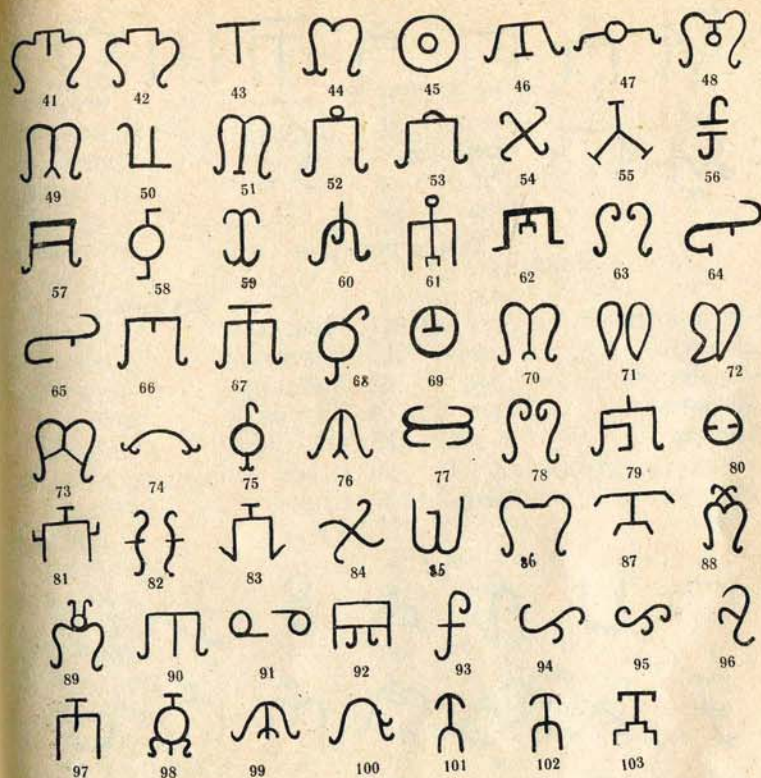 41 42 43 44 45 46 47 48
49 50 51 52 53 54 55 56
57 58 59 60 61 62 63 64
65 66 67 68 69 70 71 72
73 74 75 76 77 78 79 80
81 82 83 84 85 86 87 88
89 90 91 92 93 94 95 96
97 98 99 100 101 102 103